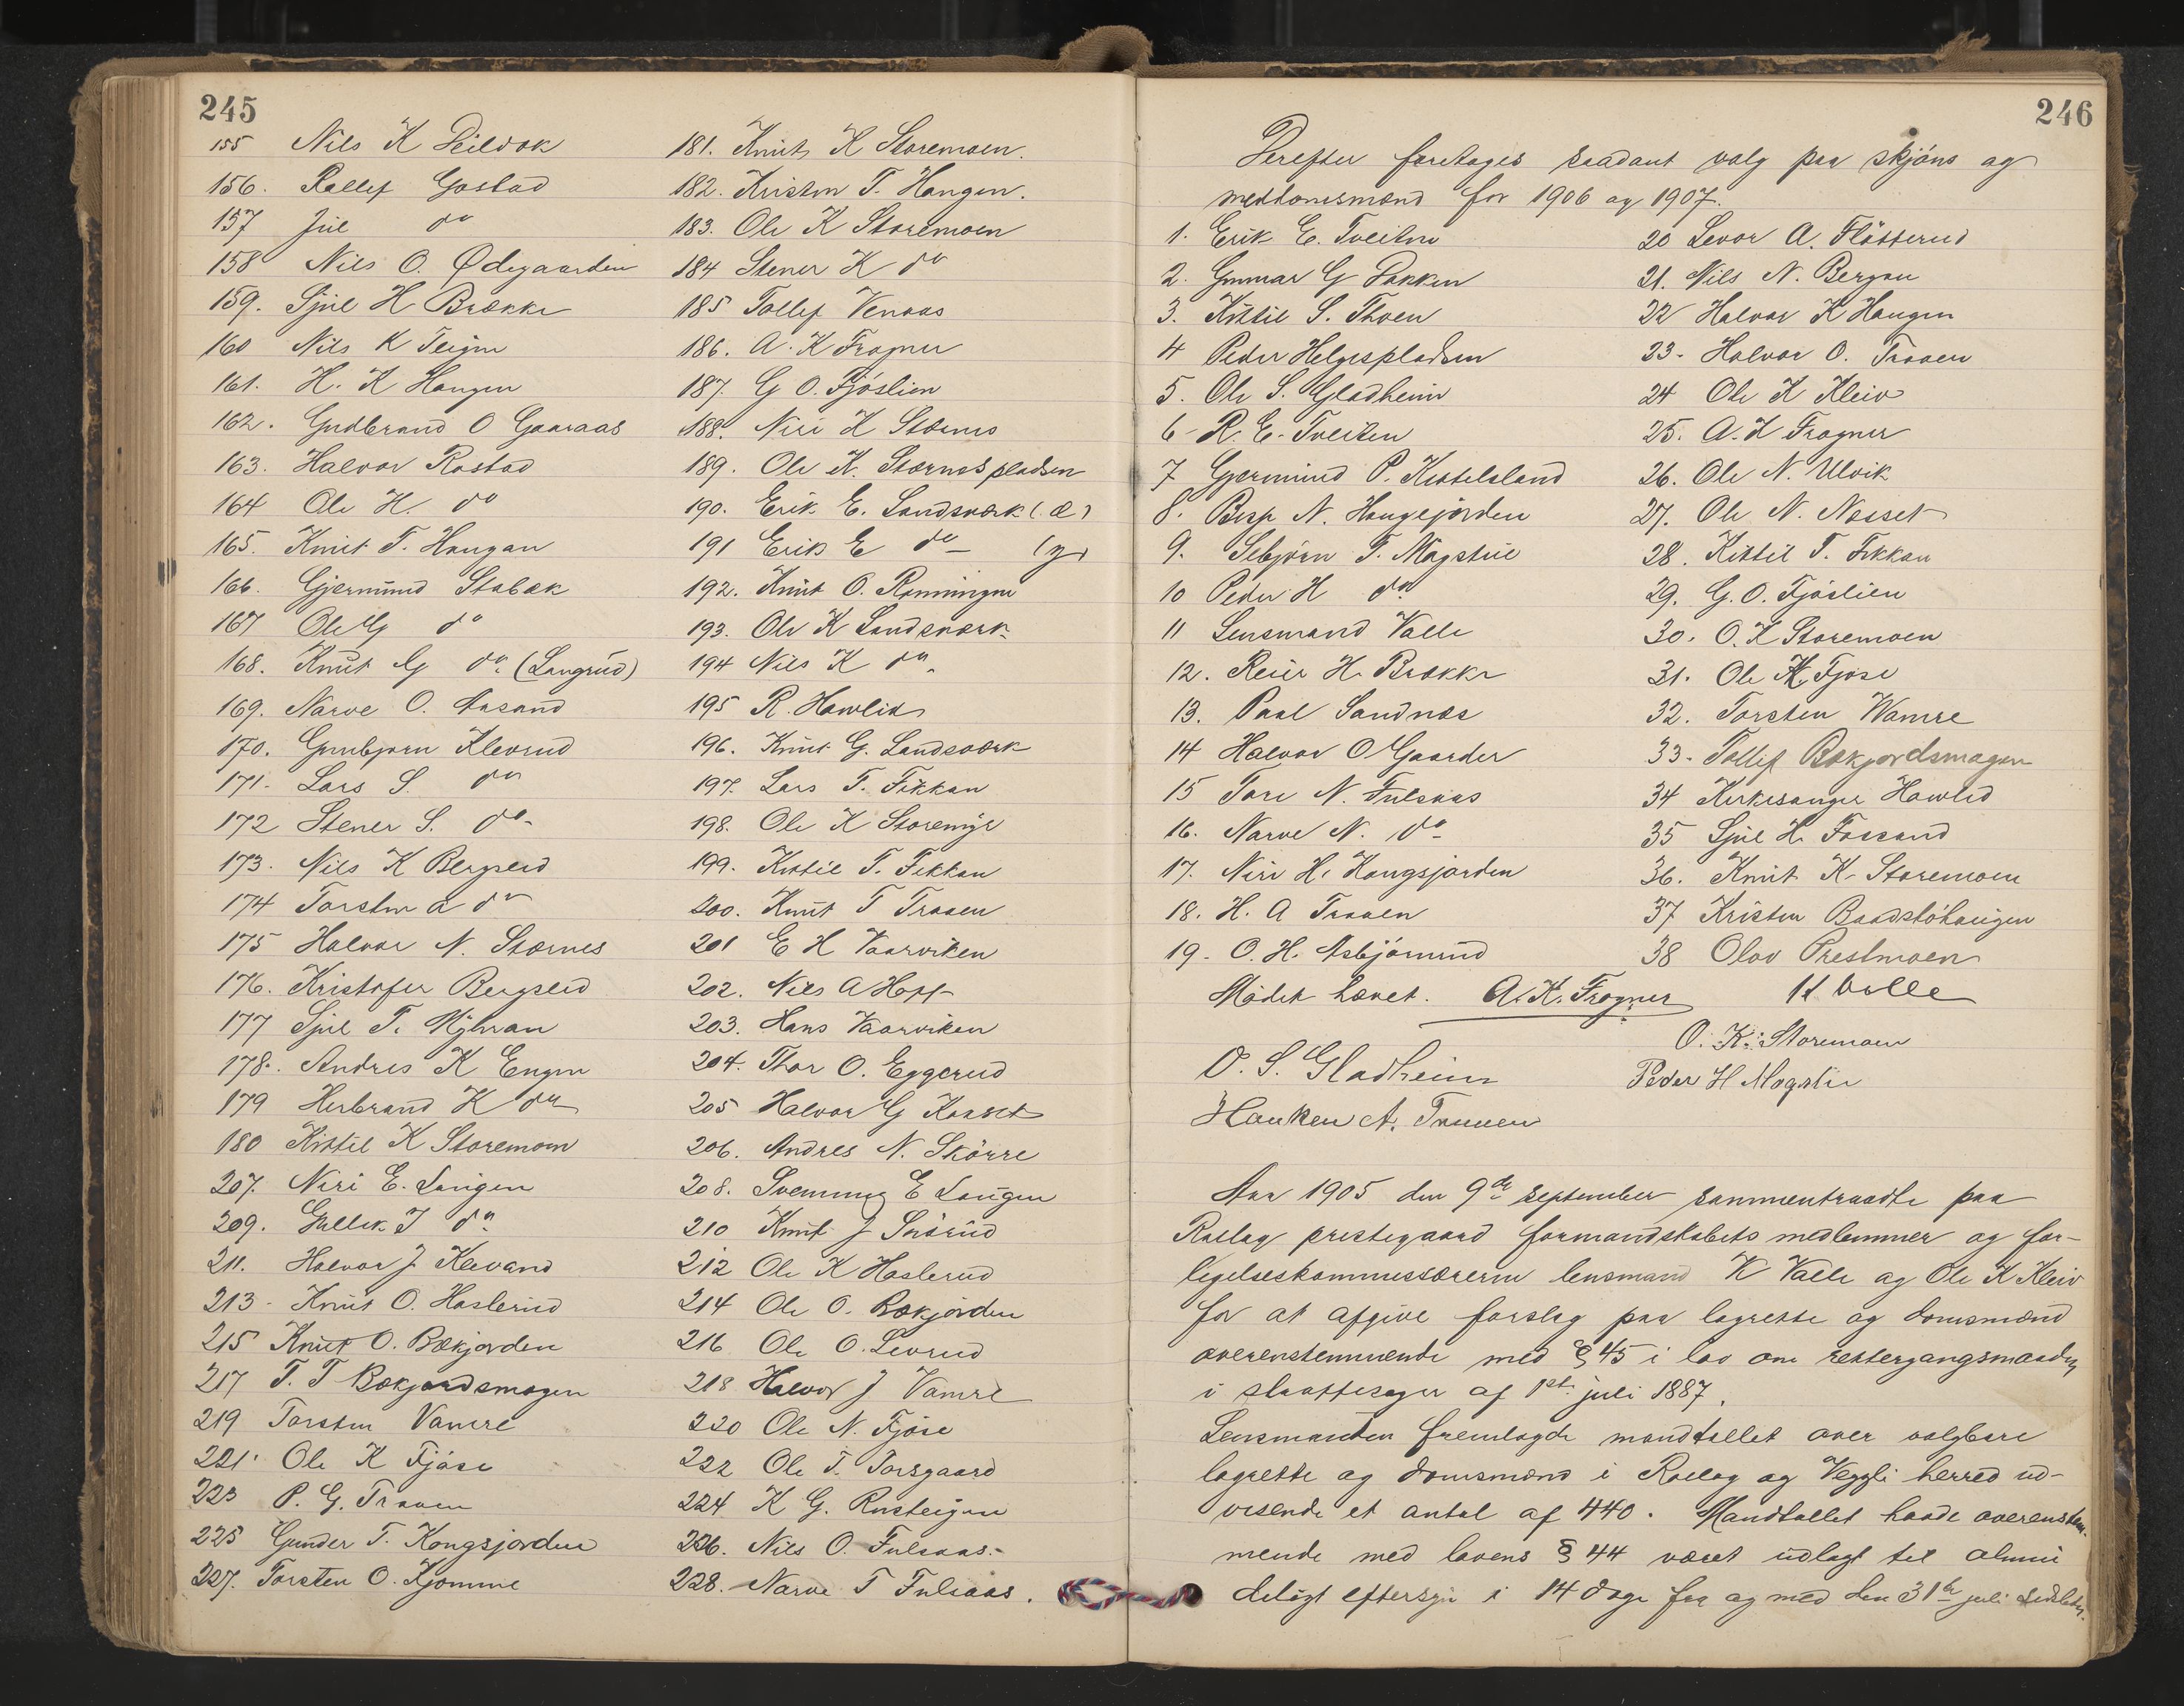 245
155 Nils K Deildok
156. Rollef Gostad
157 Jul do
158 Nils O. Ødegaarden
159. Sjul H Brække
160 Nils K Teigen
161. H. K Haugen
162. Gudbrand O Gaaraas
163. Halvor Rostad
164 Ole H. do
165. Knut T. Haugan
166. Gjermund Stabæk
167 Ole G do
168. Knut G do. (Langrud)
169. Narve O. Aasand
170. Gunbjørn Klevrud
171. Lars S. do
172 Stener S. do.
173. Nils K Bergseid
174 Torsten A do
175 Halvor N. Stærnes
176. Kristofer Bergseid
177 Sjul T.
178. Andres K Engen
179 Herbrand K do
180 Kittil K Storemoen
207. Niri E. Laugen
209. Gullek J do
211. Halvor J Klevand
213. Knut O. Haslerud
215 Knut O. Bækjorden
217 T. T Bækjordsmogen
219 Torsten Vamre
221. Ole K Fjøse
223 P. G. Traaen
225 Gunder T. Kongsjorden
227. Torsten O. Kjomme
181. Knut K Storemoen.
182. Kristen T. Haugen.
183. Ole K Storemoen
184 Stener K do
185 Tollef Venaas
186. A. K Frogner
187. G O. Fjøslien
188. Niri K Stærnes
189. Ole K. Stærnespladsen
190. Erik E. Landsværk (æ)
191 Erik E do (y)
192. Knut O. Ronningen
193. Ole K Landsværk
194 Nils K do.
195 R. Hawlid
196. Knut G. Landsværk
197. Lars T. Fikkan
198. Ole K Storemyr
199. Kittil T. Fikkan
200. Knut T Traaen
201 E H Vaarviken
202. Nils A Hoff
203. Hans Vaarviken
204. Thor O. Eggerud
205 Halvor G Kasset
206. Andres N. Skörre
208. Svenning E Laugen
210 Knut J Snörud
212 Ole K Haslerud
214 Ole O. Bækjorden
216 Ole O. Levrud
218 Halvor J Vamre
220 Ole N. Fjöse
222 Ole T. Torsgaard
224 K G. Rusteigen
226. Nils O. Fulsaas.
228. Narve T Fulsaas.
246
Derefter foretoges saadant valg paa skjöns og
meddomsmænd for 1906 og 1907.
1. Erik E. Tveiten
2. Gunnar G Bakken
3. Kittil S. Thoen
4 Peder Helgespladsen
5. Ole S. Gladheim
6 R. E. Tveiten
7 Gjermund P. Kittelsland
8. Berg N. Haugejorden
9. Sebjörn T. Mogstue
10 Peder H do
11 Lensmand Valle
12. Reier H. Brække
13. Paal Sandnæs
14 Halvor O Gaarder
15 Tore N. Fulsaas
16. Narve N. do
17. Niri H. Kongsjorden
18. H. A Traaen
19. O. H. Asbjörnrud
20 Levor A. Flötterud
21. Nils N. Bergan
22 Halvor K Haugen
23. Halvor O. Traaen
24 Ole K Kleiv
25. A. K Frogner
26. Ole N. Ulvik
27. Ole N. Nösset
28. Kittil T. Fikkan
29. G. O. Fjöslien
30. O. K Storemoen
31. Ole K. Fjöse
32. Torsten Wamre
33. Tollef Bækjordsmogen
34 Kirkesanger Hawlid
35 Sjul H. Fossand
36. Knut K. Storemoen
37 Kristen Baadstöhaugen
38 Olav Prestmoen
Mödet hævet. A. K. Frogner K Valle
O. K. Storemoen
O. S. Gladheim Peder H Mogstu
Haaken A. Traaen
Aar 1905 den 9de september sammentraadte paa
Rollag prestegaard formandskabets medlemmer og for-
ligelseskommissærerne lensmand K Valle og Ole K Kleiv
for at afgive forslag paa lagrette og domsmænd
overenstemmende med § 45 i lov om rettergangsmaaden
i straffesager af 1ste juli 1887.
Lensmanden fremlagde mandtallet over valgbare
lagrette og domsmænd i Rollag og Veggli herred ud-
visende et antal af 440. Mandtallet havde overenstem-
mende med lovens § 44 været udlagt til almin
deligt eftersyn i 14 dage fra og med den 31te juli sidstl.